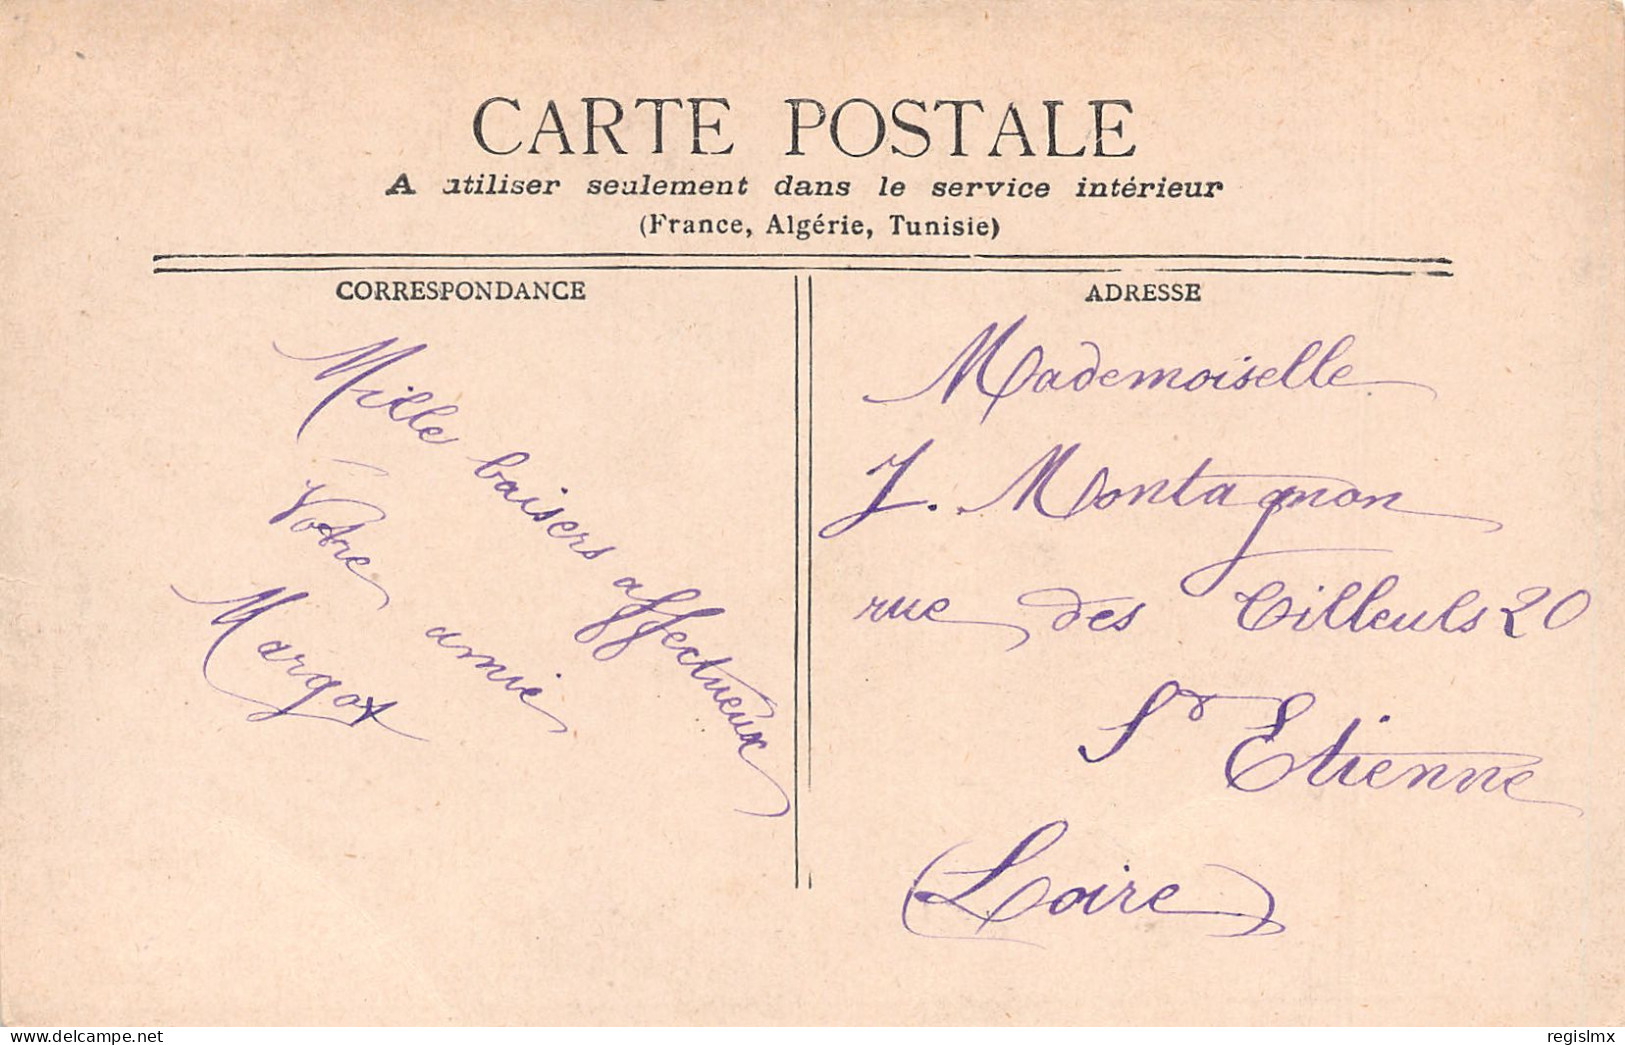 CARTE POSTALE
A utiliser seulement dans le service intérieur
(France, Algérie, Tunisie)
CORRESPONDANCE
Mille baisers affectueux
Votre amie
Margot
ADRESSE
Mademoiselle
J. Montagnon
rue des Tilleuls 20
St Etienne
(Loire)
delcampe.net
regislmx